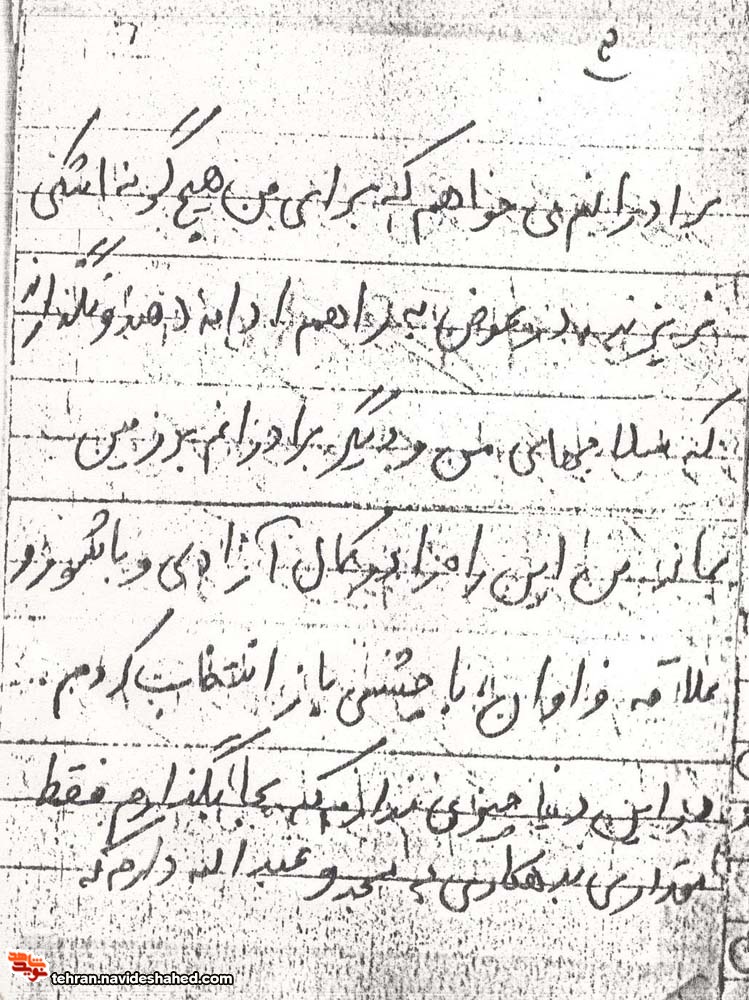 ۵
برادرانم می خواهم که برای من هیچ گونه اشکی
نریزند در عوض به راهم ادامه دهند و نگذارند
که سلاحهای من و دیگر برادرانم بر زمین
بماند من این راه را در کمال آزادی و با شور و
علاقه فراوان با چشمی باز انتخاب کردم ..
در این دنیا چیزی ندارم که بجا بگذارم فقط
مقداری بدهکاری به امجد و عبدالله دارم که
نوید شاهد
tehran.navideshahed.com